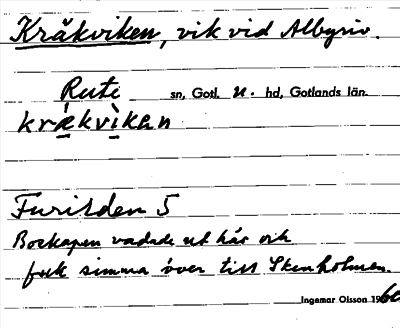 Kråkviken, vik vid Albyriv.
Rute sn, Gotl. n. hd, Gotlands län.
krækvikan
Furilden 5
Boskapen vadade ut här och
fick simma över till Skenholmen.
Ingemar Olsson 1960